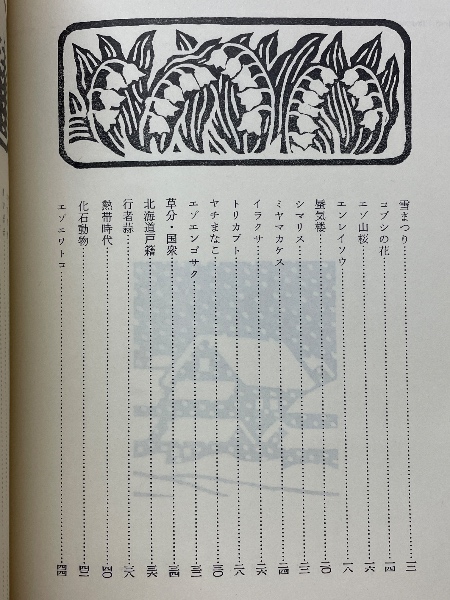 雪まつり……一二
コブシの花……一四
エゾ山桜……一六
エンレイソウ……一八
蜃気楼……二〇
シマリス……二二
ミヤマカケス……二四
イラクサ……二六
トリカブト……二八
ヤチまなこ……三〇
エゾエンゴサク……三二
草分・国衆……三四
北海道戸籍……三六
行者蒜……三八
熱帯時代……四〇
化石動物……四二
エゾニワトコ……四四